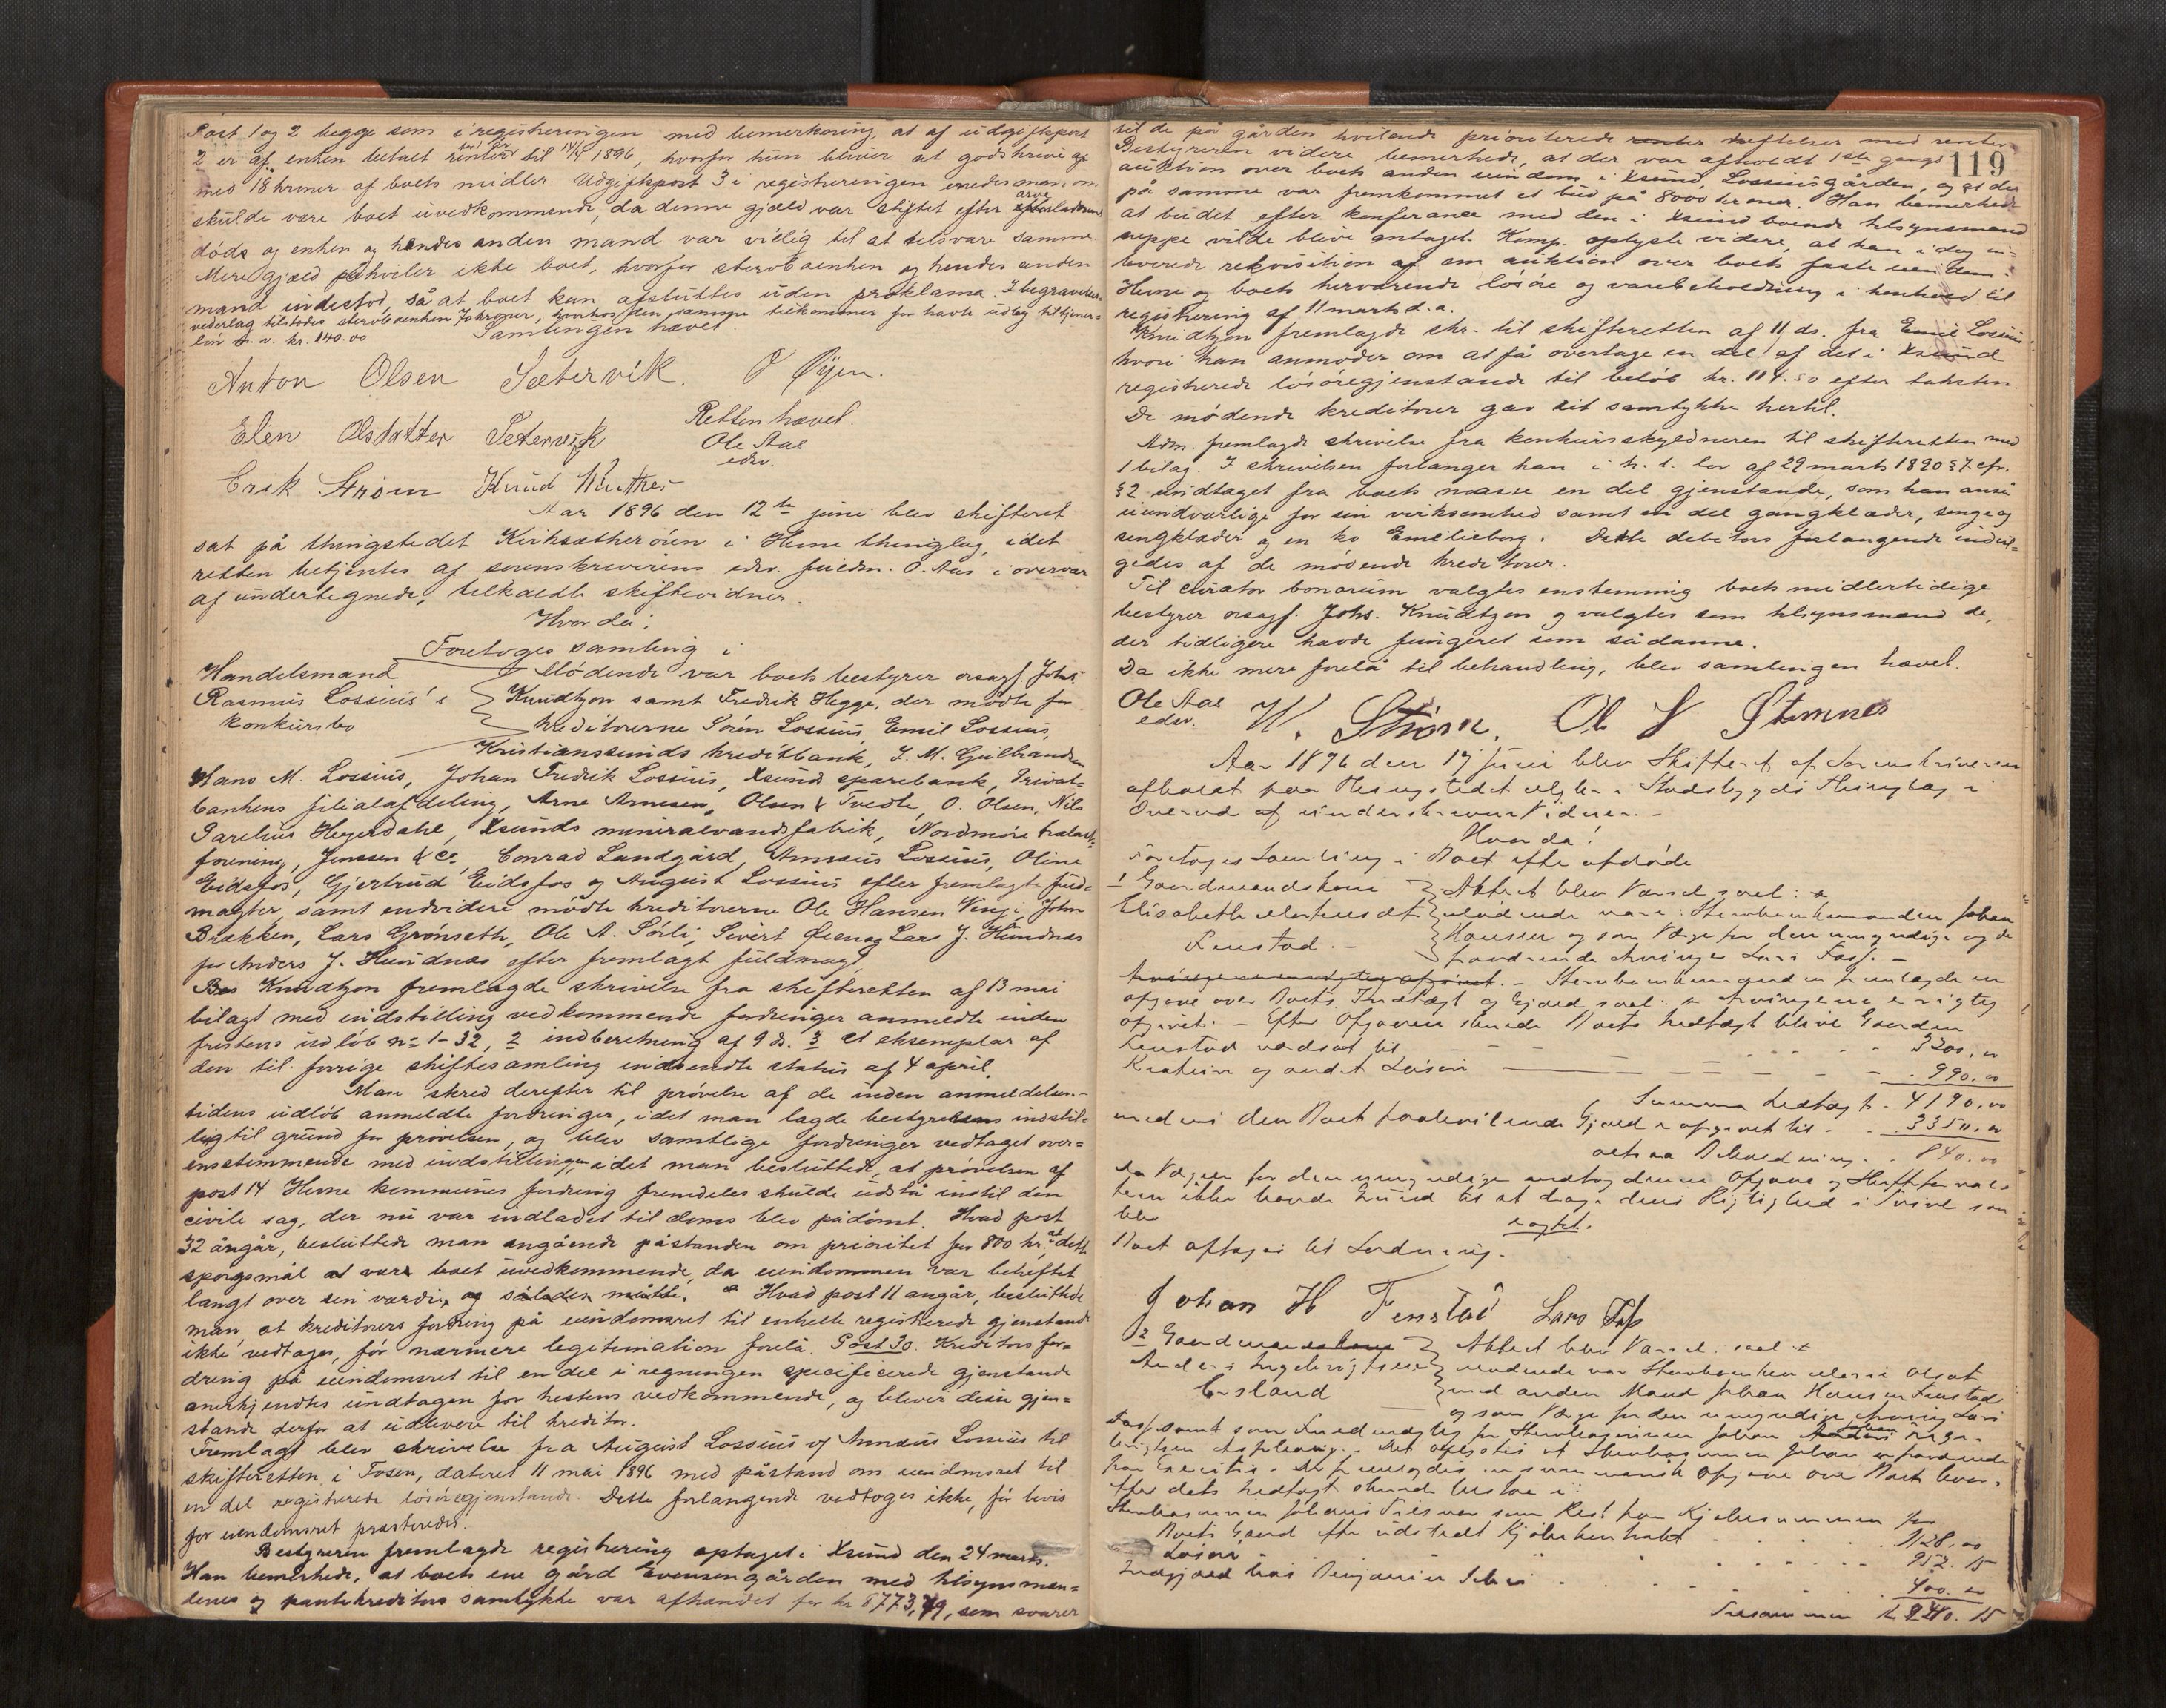 Post 1 og 2 begge som i registreringen med bemerkning, at af udgiftspost
2 er af enken betalt renter til 14/4 1896, hvorfor hun bliver at godskrive
med 18 kroner af boets midler. Udgiftspost 3 i registreringen enedes man om
skulde være boet uvedkommende, da denne gjæld var stiftet efter arveladerens
død og enken og hendes anden mand var villig til at tilsvare samme.
Mere gjæld påhviler ikke boet, hvorfor stervboenken og hendes anden
mand indestod, så at boet kan afsluttes uden proklama. I begravelses-
vederlag tilstodes stervboenken 70 kroner, hvorhos den samme tilkommer for havte udlæg til tjener-
løn kr. 140.00
Samlingen hævet.
Anton Olsen Sætervik. O Øyen.
Elen Olsdatter Setervik
Retten hævet.
Ole Aas
edsv.
Erik Strøm Knud
Aar 1896 den 12te juni blev skifteret
sat på thingstedet Kirksæterøien i Hemne thinglag, idet
retten betjentes af sorenskriverens edsv. fuldm. O. Aas i overvær
af undertegnede, tilkaldte skiftevidner.
Hvor da:
Foretoges samling i
Handelsmand
Rasmus Lossius's
konkursbo
Mødende var boets bestyrer orsagf. Johs.
Knudtzon samt Fredrik Hegge, der mødte for
kreditorerne Sørn Lossius, Emil Lossius,
Kristianssunds kreditbank, I. M. Gulbrandsen
Hans M. Lossius, Johan Fredrik Lossius, Xsunds sparebank, Privat-
bankens filialafdeling, Arne Arnesen, Olsen & Tvedte, O. Olsen, Nils
Parelius Heyerdahl, Xsunds mineralvandsfabrik, Nordmøre trælast-
forening, Jenssen & Co, Conrad Landgård, Annæus Lossius, Oline
Eidsfos, Gjertrud Eidsfos og August Lossius efter fremlagte fuld-
magter, samt endvidere mødte kreditorerne Ole Hansen Vinje, John
Brækken, Lars Grønseth, Ole A. Sørli, Sivert Øien og Lars J. Hundnæs
for Anders J. Hundnæs efter fremlagt fuldmagt
Knudtzon fremlagde skrivelse fra skifteretten af 13 mai
bilagt med indstilling vedkommende fordringer anmeldte inden
fristens udløb no 1-32, 2 indberetning af 9 ds. 3 et eksemplar af
den til forrige skiftesamling indsendte status af 4 april.
Man skred derefter til prøvelse af de inden anmeldelses-
tidens udløb anmeldte fordringer, idet man lagde bestyrelsens indstil-
ling til grund for prøvelsen, og blev samtlige fordringer vedtaget over-
ensstemmende med indstillingen, idet man besluttede, at prøvelsen af
post 14 Hemne kommunes fordring fremdeles skulde udstå indtil den
civile sag, der nu var indladet til doms blev pådømt. Hvad post
32 angår, besluttede man angående påstanden om prioritet for 800 kr. at dette
spørgsmål var boet uvedkommende, da eiendommen var beheftet
langt over sin værdi, og således måtte. Hvad post 11 angår, besluttede
man, at kreditors fordring på eiendomsret til enkelte registrerede gjenstande
ikke vedtages, før nærmere legitimation forelå. Post 30. Kreditors for-
dring på eiendomsret til en del i regningen specificerede gjenstande
anerkjendtes undtagen for hestens vedkommende, og bliver disse gjen-
stande derfor at udlevere til kreditor.
Fremlagt blev skrivelse fra August Lossius og Annæus Lossius til
skifteretten i Fosen, dateret 11 mai 1896 med påstand om eiendomsret til
en del registrerede løsøregjenstande. Dette forlangende vedtoges ikke, før bevis
for eiendomsret præsteredes.
Bestyreren fremlagde registrering optaget i Xsund den 24 marts.
Han bemerkede, at boets ene gård Evensengården med tilsynsmæn-
denes og pantekreditors samtykke var afhændet for kr 8773,49, som svarer
119
til de på gården hvilende prioriterede renter heftelser med renter.
Bestyreren videre bemerkede, at der var afholdt 1ste gangs
auktion over boets anden eiendom i Xsund, Lossiusgården, og at der
på samme var fremkommet et bud på 8000 kroner. Han bemerkede
at budet efter konferance med den i Xsund boende tilsynsmand
neppe vilde blive antaget. Komp. oplyste videre, at han i dag in-
leverede rekvisition af om auktion over boets faste eiendom i
Hemne og boets herværende løsøre og varebeholdning i henhold til
registrering af 11 marts d. a.
Knudtzon fremlagde skr. til skifteretten af 11 ds. fra Emil Lossius
hvori han anmoder om at få overtage en del af det i Xsund
registrerede løsøregjenstande til beløb kr. 114.50 efter taksten.
De mødende kreditorer gav sit samtykke hertil.
Adm. fremlagde skrivelse fra konkursskyldneren til skifteretten med
1 bilag. I skrivelsen forlanger han i h. t. lov af 29 marts 1890 § 7. cfr.
§ 2 undtaget fra boets masse en del gjenstande, som han anser
uundværlige for sin virksomhed samt en del gangklæder, senge og
sengklæder og en ko Emilieborg. Dette debitors forlangende indvil-
gedes af de mødende kreditorer.
Til curator bonorum valgtes enstemmig boets midlertidige
bestyrer orsagf. Johs. Knudtzon og valgtes som tilsynsmænd de,
der tidligere havde fungeret som sådanne.
Da ikke mere forelå til behandling, blev samlingen hævet.
Ole Aas
edsv.
K. Strøm. Ol J Stamnes
Aar 1896 den 17 Juni blev Skifteret af Sorenskriveren
afholdt paa Thingstedet i Stadsbygds Thinglag i
Overvær af underskrevne Vidner.
Hvor da:
Foretoges Samling i Boet efter afdøde
1 Gaardmandskone
Elisabeth Mortensdt
Fenstad.
Attest blev Varsel
Mødende var: Stervboenkemanden Johan
Hansen og som Værge for den umyndige og de
fraværende Arvinger Lars Fass.
Stervboenkemanden fremlagde en
opgave over Boets Indtægt og Gjæld Arvingerne rigtig
opgivet. Efter Opgaven skulde Boets Indtægt blive Gaarden
Fenstad værdsat til 3200.00
Kreaturer og andet Løsøre 990.00
Summa Indtægt 4190.00
medens den Boet paahvilende Gjæld er opgivet til 3350.00
altsaa Beholdning 840.00
Da Værgen for den umyndige modtog denne Opgave og Skifteforval-
teren ikke havde Grund til at drage dens Rigtighed i Tvivl saa
blev
Boet optages til Slutning.
Johan H Fenstad Lars Fass
2 Gaardmand
Anders Ingebrigtsen
Attest blev Varsel
mødende var Stervboenken Marie Olsdt
med anden Mand Johan Hansen Fenstad
og som Værge for den umyndige Arving Lars
Fass samt som Fuldmægtig for Stervbosønnen Johan
Løsøre 952.15
400.00